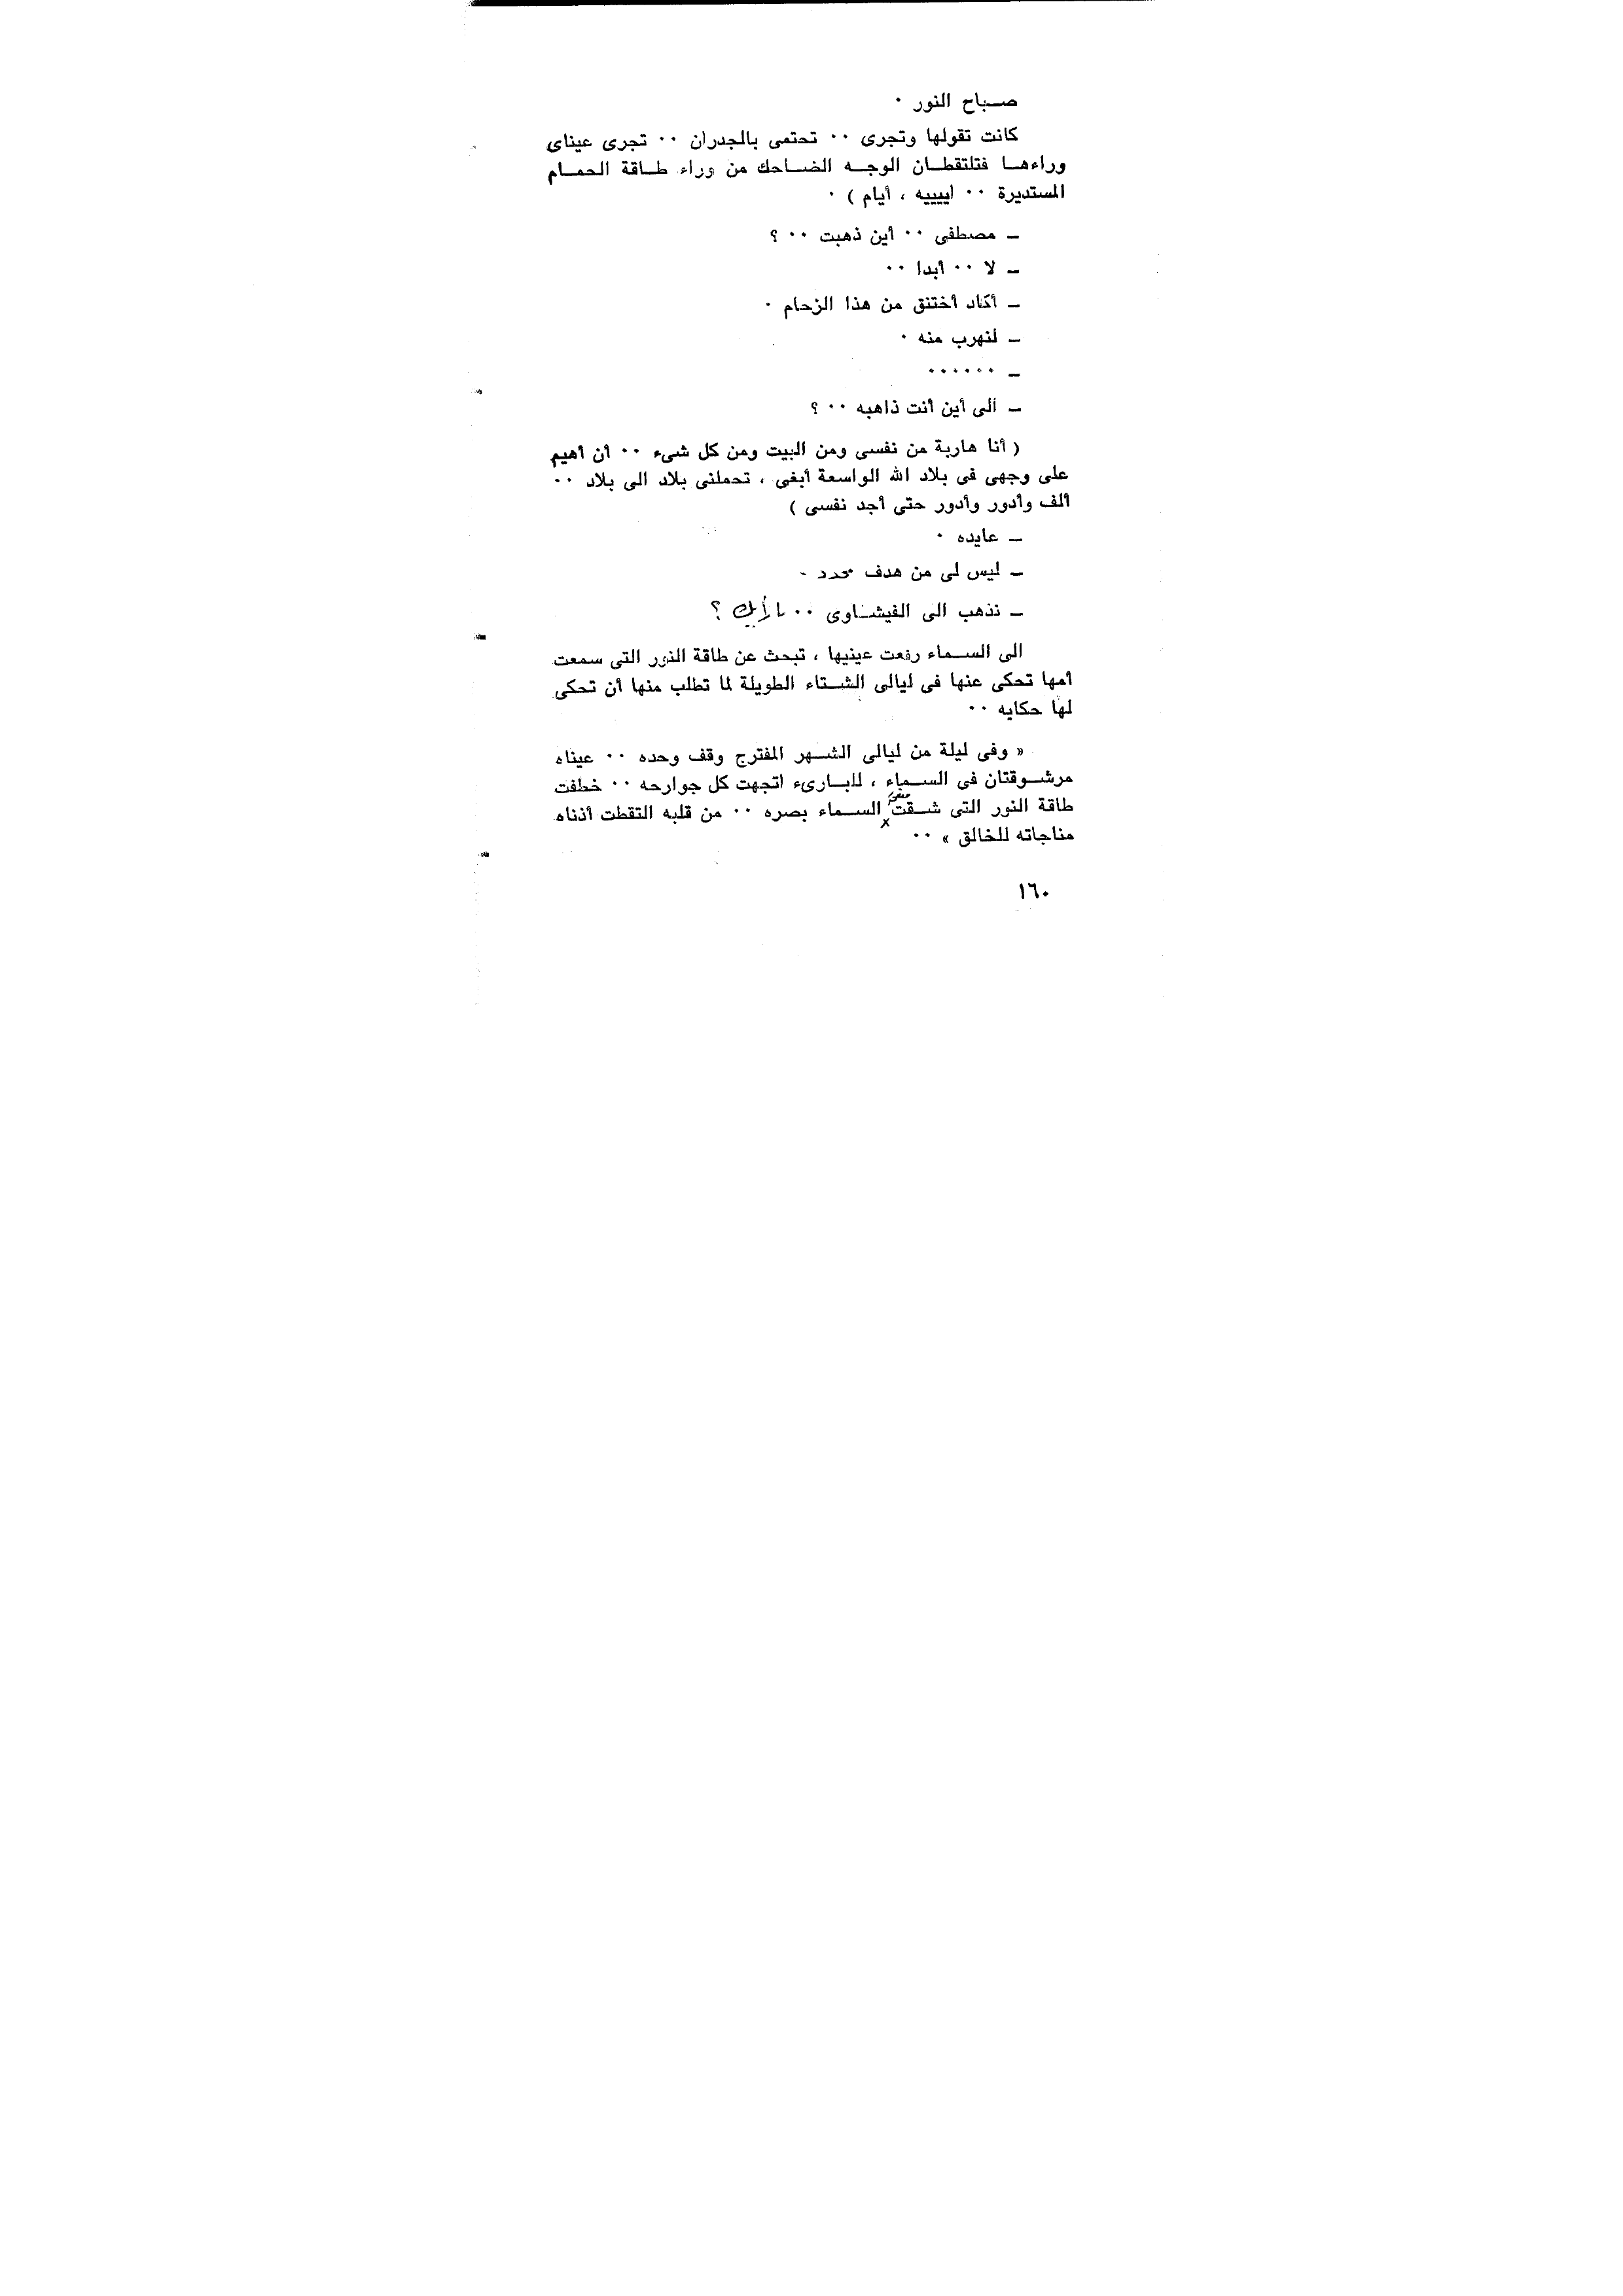 صباح النور ٠
كانت تقولها وتجرى ٠٠ تحتمى بالجدران ٠٠ تجرى عيناى
وراءها فتلتقطان الوجه الضاحك من وراء طاقة الحمام
المستديرة ٠٠ اييييه ، أيام ) ٠
ـ مصطفى ٠٠ أين ذهبت ٠٠ ؟
ـ لا ٠٠ أبدا ٠٠
ـ أكاد أختنق من هذا الزحام ٠
ـ لنهرب منه ٠
ـ ٠٠٠٠٠٠
ـ الى أين أنت ذاهبه ٠٠ ؟
( أنا هاربة من نفسى ومن البيت ومن كل شىء ٠٠ أن أهيم
على وجهى فى بلاد الله الواسعة أبغى ، تحملنى بلاد الى بلاد ٠٠
ألف وأدور وأدور حتى أجد نفسى )
ـ عايده ٠
ـ ليس لى من هدف محدد -
ـ نذهب الى الفيشاوى ٠٠ ما رأيك ؟
الى السماء رفعت عينيها ، تبحث عن طاقة النور التى سمعت
أمها تحكى عنها فى ليالى الشتاء الطويلة لما تطلب منها أن تحكى
لها حكايه ٠٠
« وفى ليلة من ليالى الشهر المفترج وقف وحده ٠٠ عيناه
مرشوقتان فى السماء ، للبارىء اتجهت كل جوارحه ٠٠ خطفت
طاقة النور التى شقت السماء بصره ٠٠ من قلبه التقطت أذناه
مناجاته للخالق » ٠٠
١٦٠